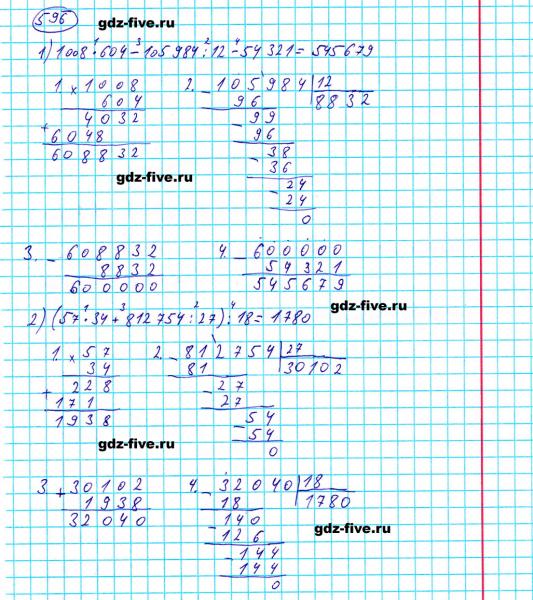 596 gdz-five.ru
1) 1008 ·¹ 604 -³ 105984 :² 12 -⁴ 54321 = 545679
1. × 1008 2. - 105984 | 12
604 96 8832
4032 - 99
+ 6048 96
608832 - 38
gdz-five.ru 36
- 24
24
0
3. - 608832 4. - 600000
8832 54321
600000 545679
gdz-five.ru
2) (57 ·¹ 34 +³ 812754 :² 27) :⁴ 18 = 1780
1. × 57 2. - 812754 | 27
34 81 30102
+ 228 - 27
171 27
1938 - 54
gdz-five.ru 54
0
3. + 30102 4. - 32040 | 18
1938 18 1780
32040 - 140
126 gdz-five.ru
- 144
144
0